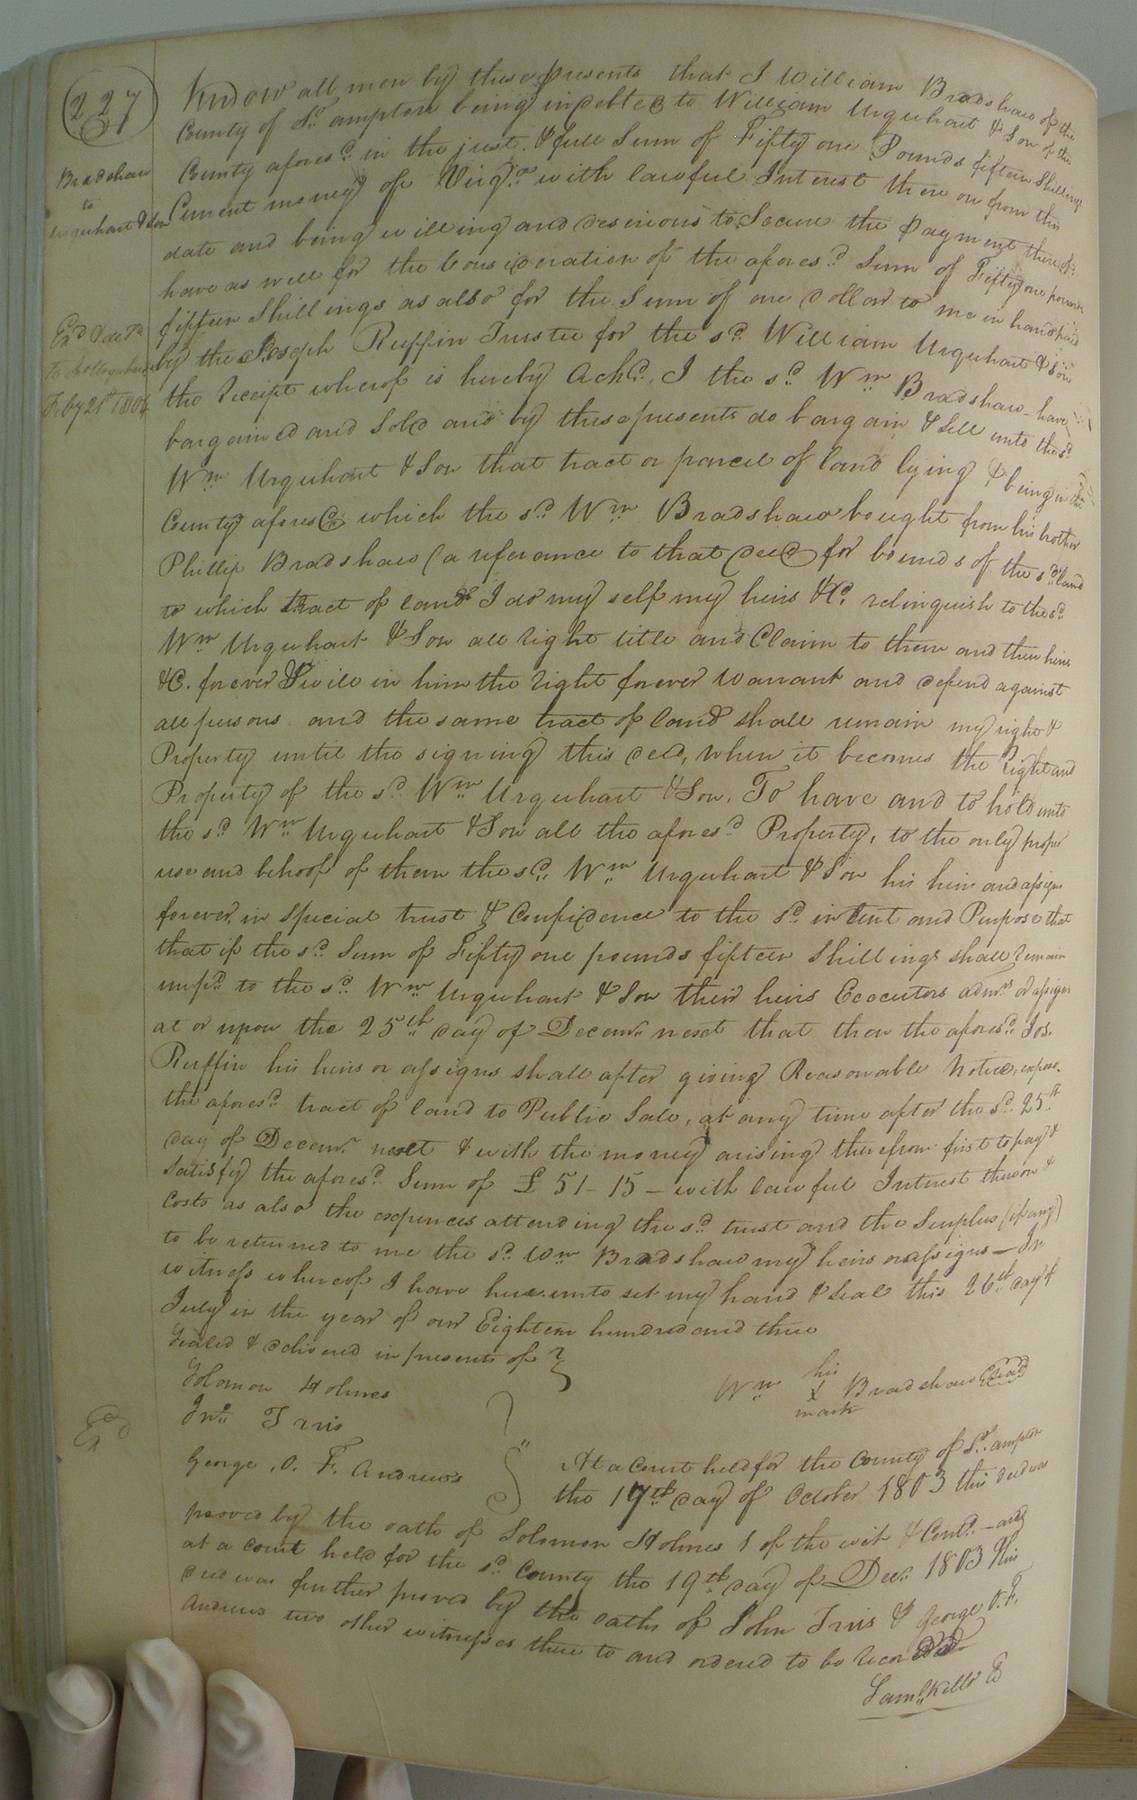 227
Bradshaw
to
Urquhart & Son
Exd & deld
Feby 21st 1806
Know all men by these presents that I William Bradshaw of the
County of So. ampton being indebted to William Urquhart & Son of the
County afores.d in the just & full Sum of Fifty one Pounds fifteen Shillings
Current money of Virga with lawful Interest there on from this
date and being willing and desirious to Secure the Payment thereof
have as well for the Consideration of the afores.d Sum of Fifty one pounds
fifteen Shillings as also for the Sum of one dollar to me in hand paid
by the Joseph Ruffin Trustee for the sd. William Urquhart & Son
the receipt whereof is hereby Ackd. I the sd. Wm Bradshaw have
bargained and Sold and by these presents do bargain & Sell unto the sd.
Wm Urquhart & Son that tract or parcel of land lying & being in the
County aforesd which the sd. Wm Bradshaw bought from his brother
Phillip Bradshaw (a referance to that deed for bounds of the sd. land
to which tract of land I do my self my heirs &C. relinquish to the sd.
Wm Urquhart & Son all right title and Claim to them and their heirs
&C. forever & will in him the right forever warrant and defend against
all persons and the same tract of land shall remain my right &
Property until the signing this deed, when it becomes the right and
Property of the sd. Wm Urquhart & Son. To have and to hold unto
the sd. Wm Urquhart & Son all the afores.d Property, to the only proper
use and behoof of them the sd. Wm Urquhart & Son his heirs and assigns
forever, in Special trust & Confidence to the sd. intent and Purpose that
that if the sd. Sum of Fifty one pounds fifteen Shillings shall remain
unpd. to the sd. Wm Urquhart & Son their heirs Executors admrs or assigns
at or upon the 25th day of Decemr. next that then the afores.d Jos.
Ruffin his heirs or assigns shall after giving Reasonable notice, expose
the afores.d tract of land to Public Sale, at any time after the sd. 25th
day of Decemr. next & with the money arising therefrom first to pay &
Satisfy the afores.d Sum of £ 51-15- with lawful Interest thereon &
Costs as also the expences attending the sd. trust and the Surplus (if any)
to be returned to me the sd. Wm Bradshaw my heirs or assigns — In
witness whereof I have hereunto set my hand & Seal this 26th day of
July in the year of our Eighteen hundred and three
Sealed & delivered in presents of
Solomon Holmes
Jno. Ivis
George. O. F. Andrews
Wm his X mark Bradshaw Seal
Exd
At a Court held for the County of So. ampton
the 17th day of October 1803 this deed was
proved by the oath of Solomon Holmes 1 of the wit & Contd. — and
at a Court held for the sd. County the 19th day of Decr. 1803 this
deed was further proved by the oaths of John Ivis & George O. F.
Andrews two other witnesses there to and ordered to be recorded
Saml. Kello